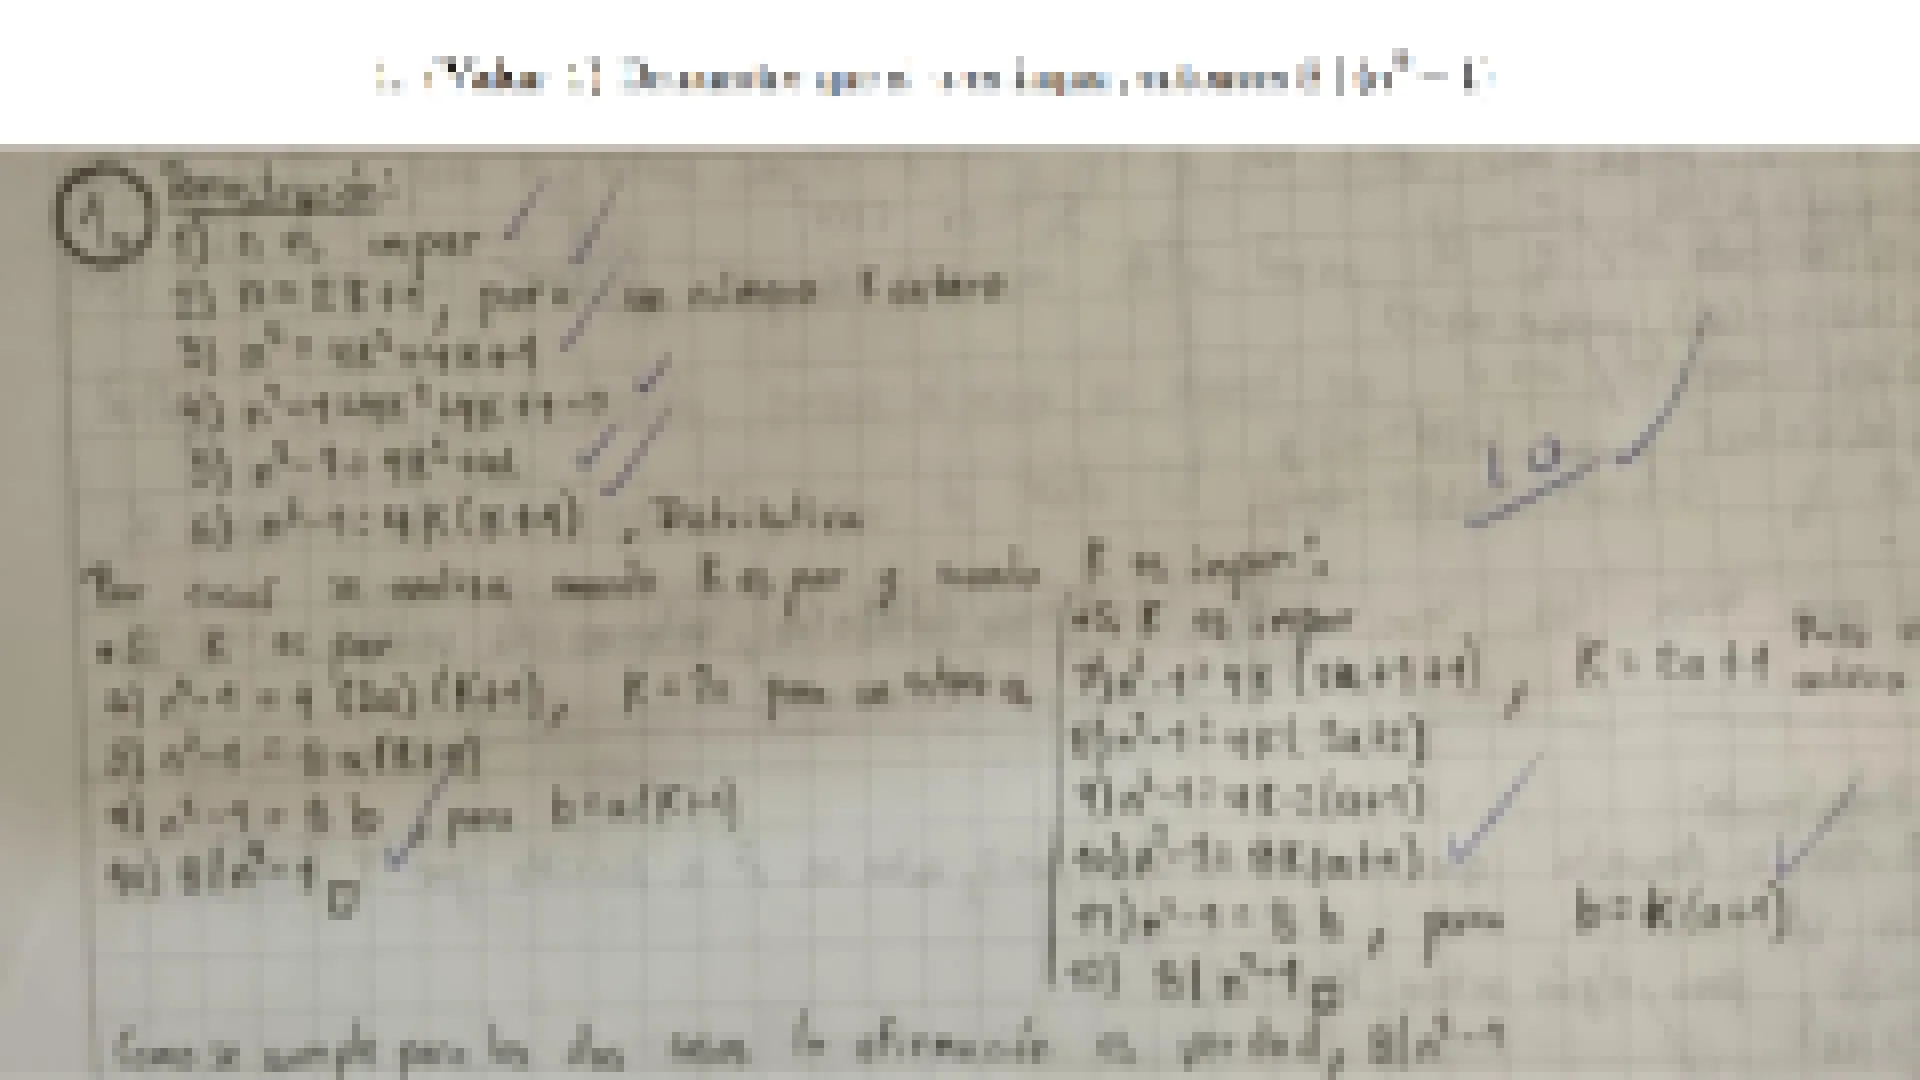 1. (Valor 1) Demuestre que si n es impar, entonces 8 | (n² − 1)
1. Demostración:
1) n es impar
2) n = 2K+1, para un número K entero
3) n² = 4K²+4K+1
4) n²-1=4K²+4K+1-1
5) n²-1 = 4K²+4K
6) n²-1 = 4K(K+1), Distributiva
10
Por casos se analiza cuando K es par y cuando K es impar:
*Si K es par
n²-1 = 4 (2a)(K+1), K=2a para un entero a
n²-1 = 8a(K+1)
9) n²-1 = 8 b, para b=a(K+1)
10) 8|n²-1 □
*Si K es impar
7) n²-1=4K (2a+1+1), K = 2a+1
8) n²-1=4K(2a+2)
9) n²-1=4K·2(a+1)
10) n²-1= 8K(a+1)
11) n²-1 = 8 b, para b=K(a+1)
12) 8| n²-1 □
Como se cumple para los dos casos la afirmación es verdad, 8|n²-1